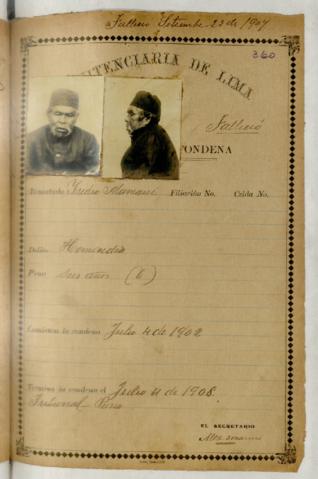 Falleció Setiembre 23 de 1907
360
ITENCIARIA DE LIMA
Falleció
ONDENA
Rematado Isidro Mamani Filiación No. Celda No.
Delito Homicidio
Pena Seis años (6)
Comienza la condena Julio 4 de 1902
Termina la condena el Julio 4 de 1908.
Tribunal Puno
EL SECRETARIO